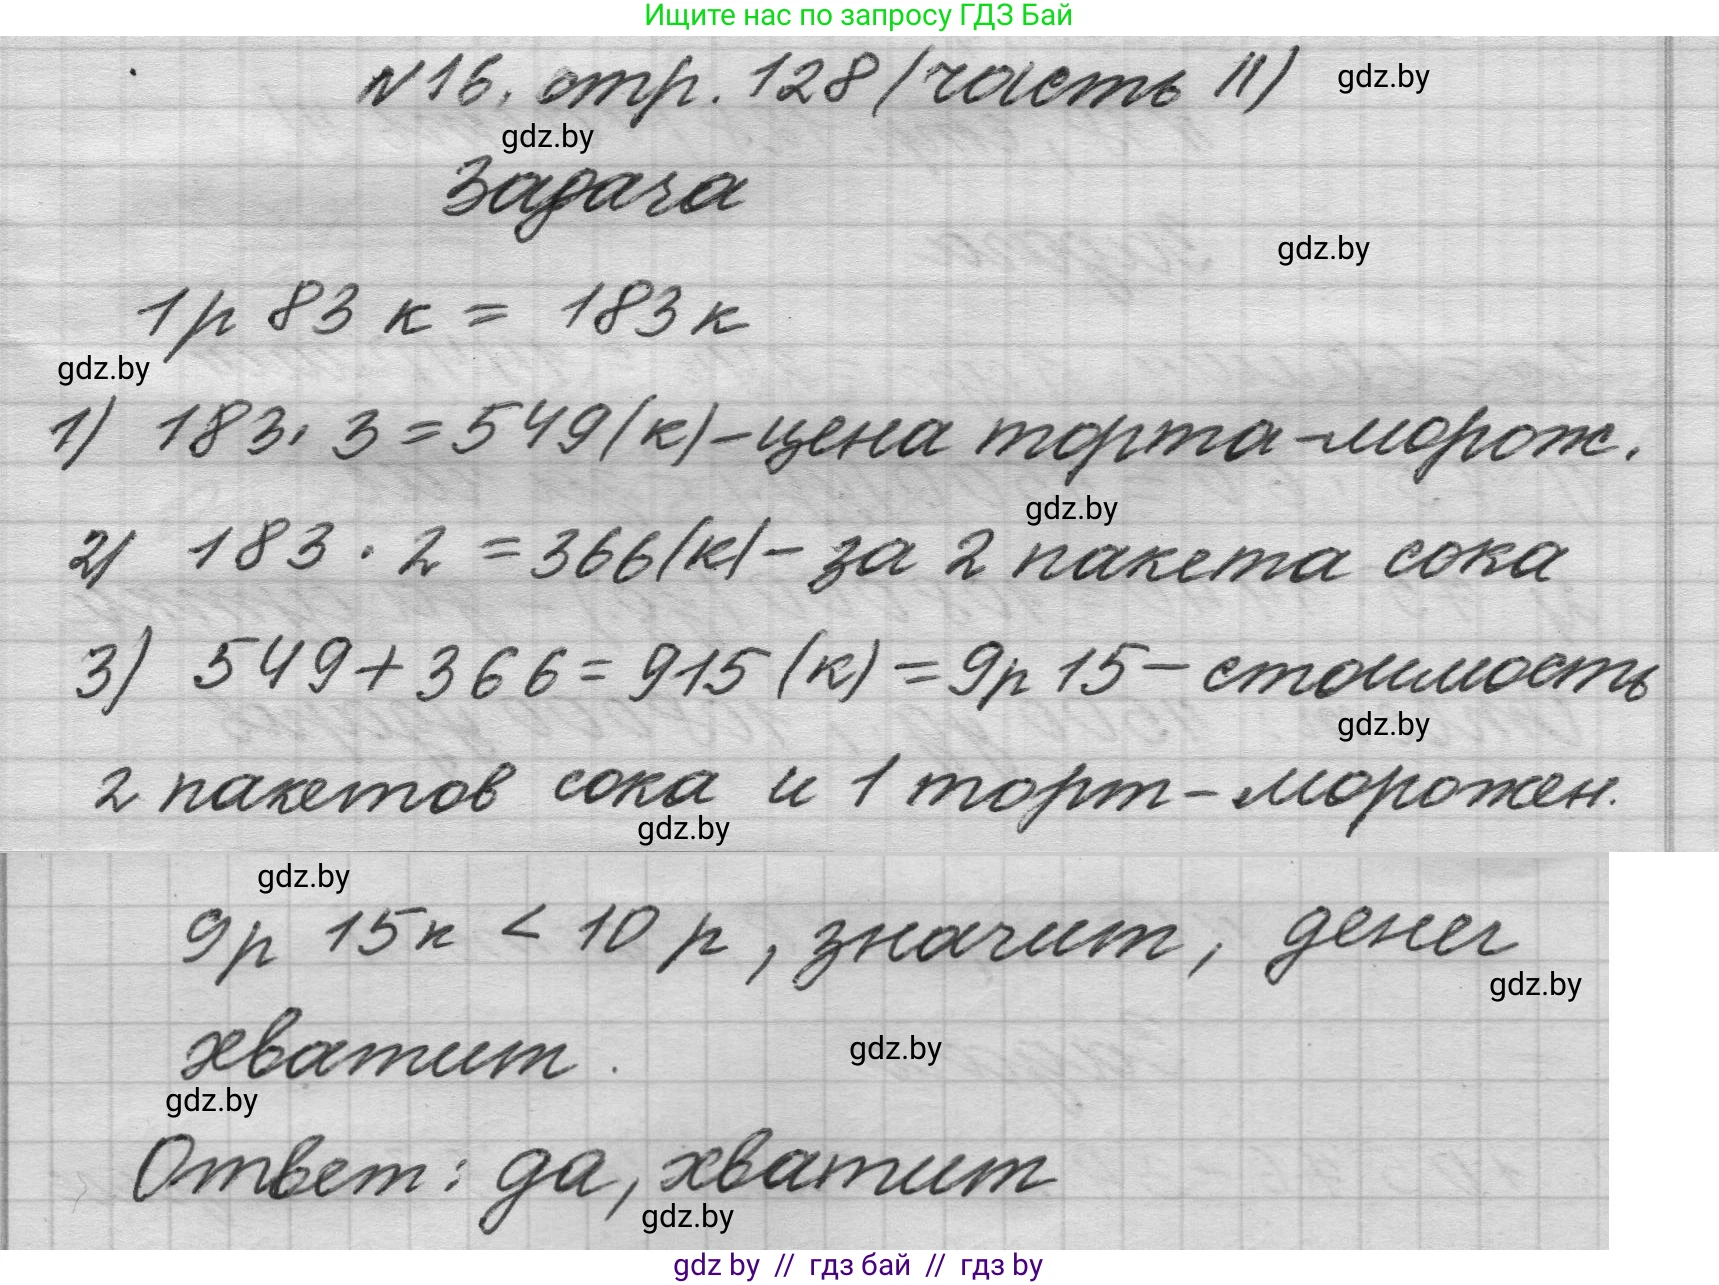 Ищите нас по запросу ГДЗ Бай
№16, стр. 128 (часть II) gdz.by
gdz.by
Задача
gdz.by
1р 83 к = 183 к
gdz.by
1) 183 · 3 = 549 (к) – цена торта-морож.
gdz.by
2) 183 · 2 = 366 (к) – за 2 пакета сока
3) 549 + 366 = 915 (к) = 9р 15 – стоимость
gdz.by
2 пакетов сока и 1 торт-морожен.
gdz.by
gdz.by
9р 15к < 10 р, значит, денег
gdz.by
хватит.
gdz.by
gdz.by
Ответ: да, хватит
gdz.by
gdz by // гдз бай // гдз by